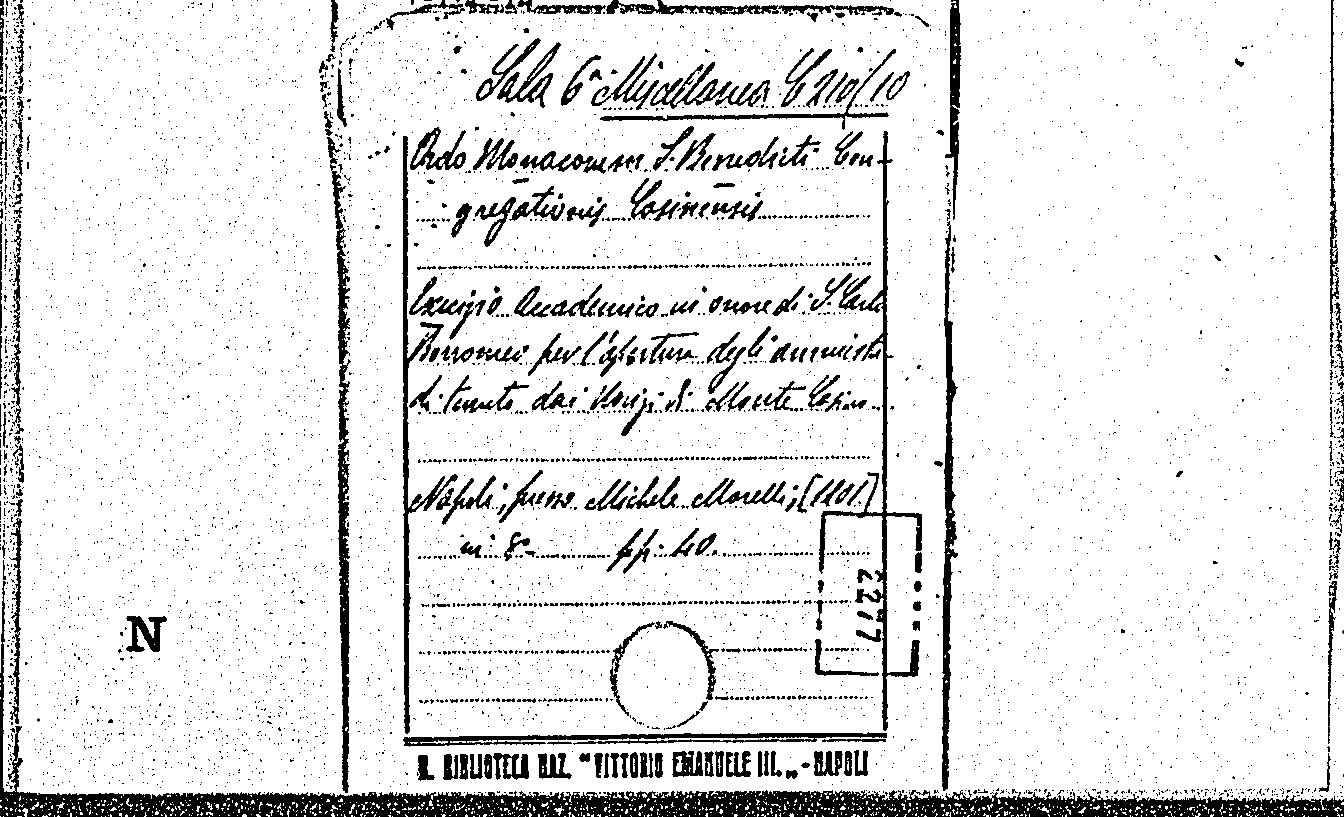 Sala 6ª Miscellanea C 210/10
Ordo Monacorum S. Benedicti Con-
gregationis Casinensis
Esercizio Accademico in onore di S. Carlo
Borromeo per l'apertura degli
di tenuto dai Monaci di Monte Casino
Napoli, presso Michele Morelli,
in 8º pp. 40.
2277
N
R. BIBLIOTECA NAZ. "VITTORIO EMANUELE III." - NAPOLI